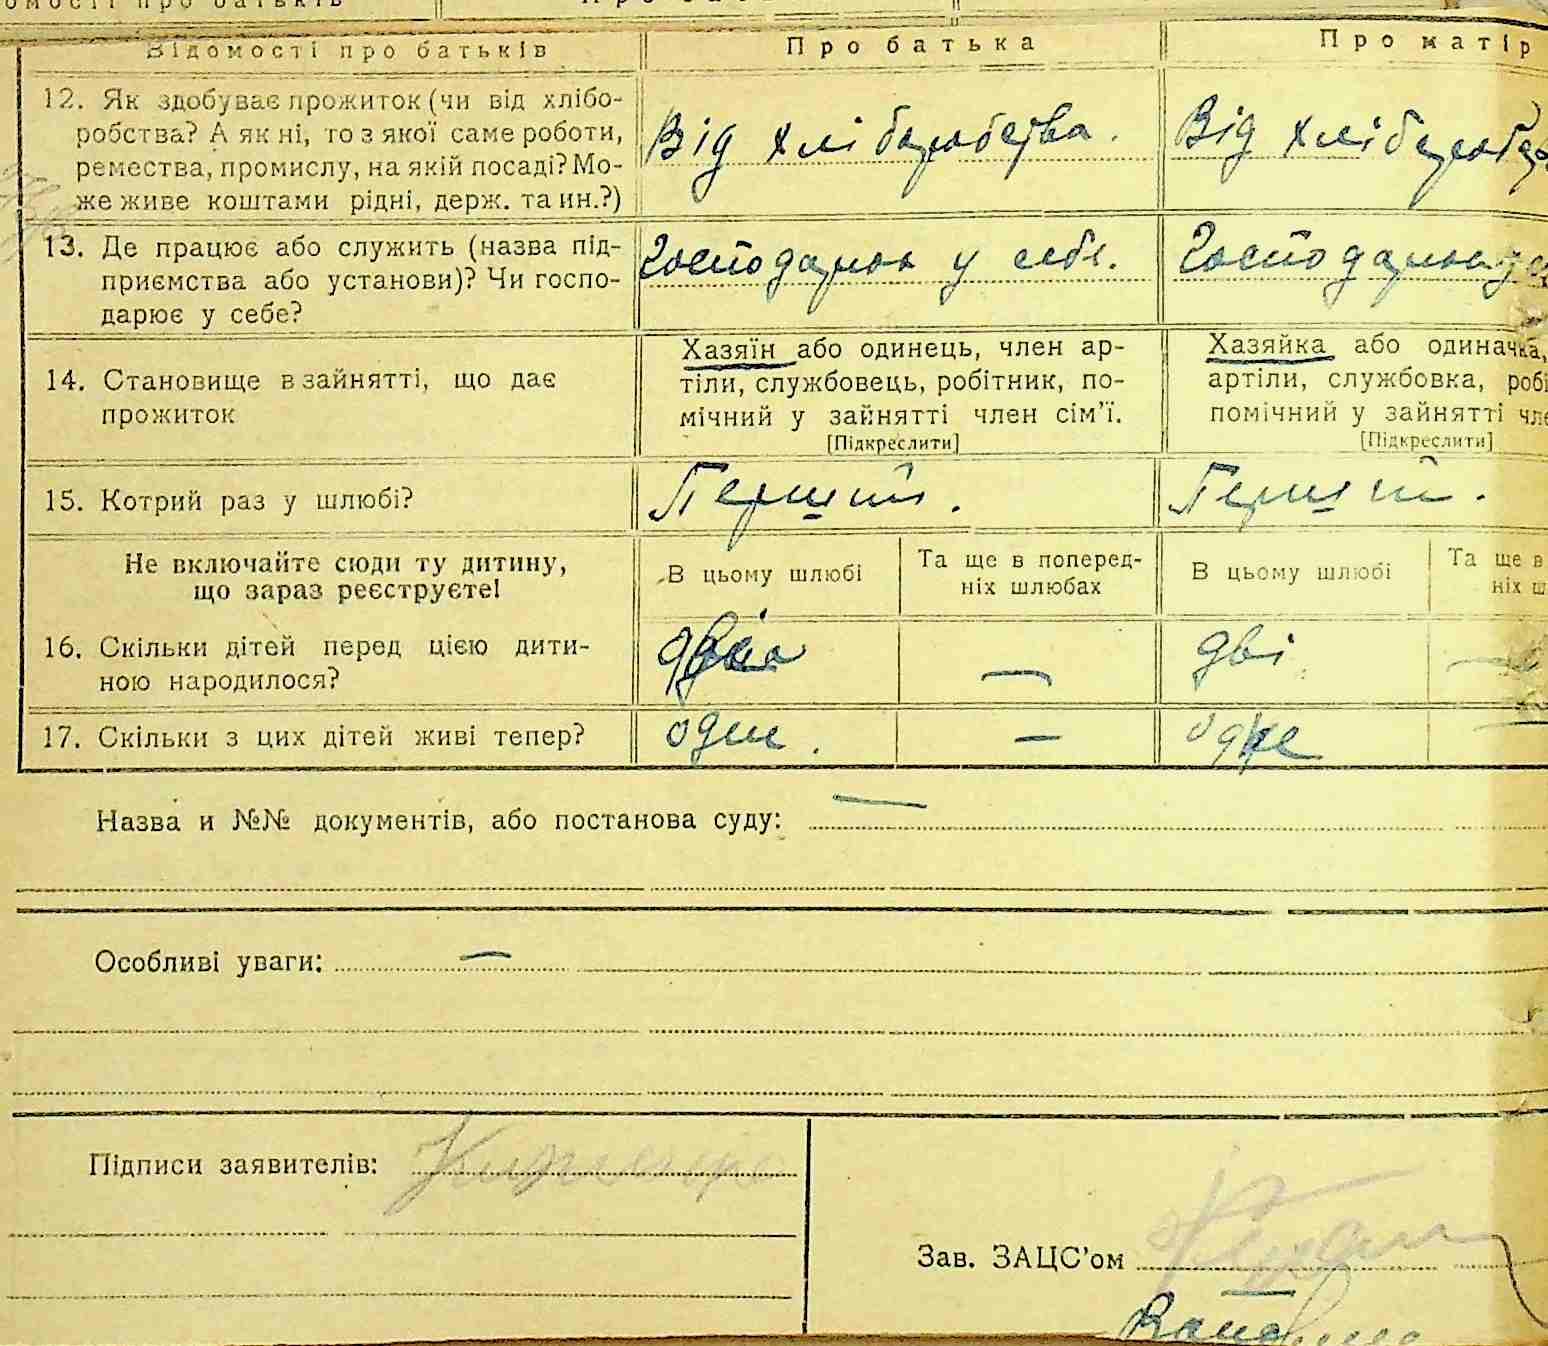 Відомості про батьків Про батька Про матір
12. Як здобуває прожиток (чи від хлібо-
робства? А як ні, то з якої саме роботи,
ремества, промислу, на якій посаді? Мо-
же живе коштами рідні, держ. та ин.?)
Від хліборобства.
Від хлібороб
13. Де працює або служить (назва під-
приємства або установи)? Чи госпо-
дарює у себе?
Господарює у себе.
Господарює
14. Становище в зайнятті, що дає
прожиток
Хазяїн або одинець, член ар-
тіли, службовець, робітник, по-
мічний у зайнятті член сім'ї.
[Підкреслити]
Хазяйка або одиначка,
артіли, службовка, робі
помічний у зайнятті чле
[Підкреслити]
15. Котрий раз у шлюбі?
Перший.
Перший.
Не включайте сюди ту дитину,
що зараз реєструєте!
В цьому шлюбі
Та ще в поперед-
ніх шлюбах
В цьому шлюбі
Та ще в
ніх ш
16. Скільки дітей перед цією дити-
ною народилося?
—
дві
—
17. Скільки з цих дітей живі тепер?
одне.
—
одне
—
Назва и №№ документів, або постанова суду: —
Особливі уваги: —
Підписи заявителів:
Зав. ЗАЦС'ом